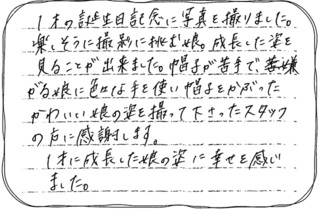 1才の誕生日記念に写真を撮りました。
楽しそうに撮影に挑む娘。成長した姿を
見ることが出来ました。帽子が苦手で嫌
がる娘に色々な手を使い帽子をかぶった
かわいい娘の姿を撮って下さったスタッフ
の方に感謝します。
1才に成長した娘の姿に幸せを感じ
ました。